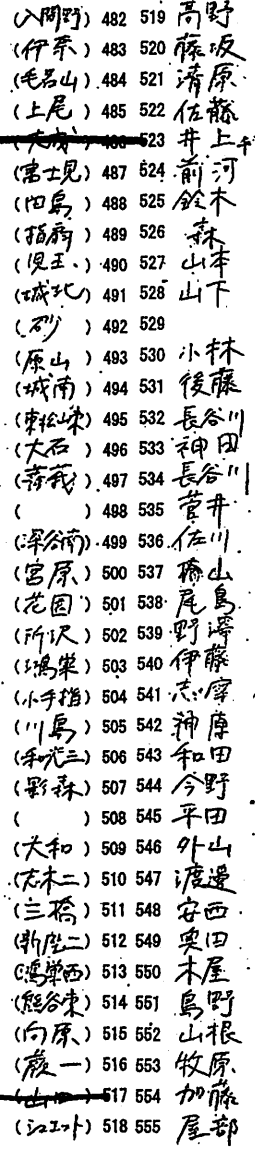 (入間野) 482 519 高野
(伊奈) 483 520 藤坂
(毛呂山) 484 521 清原
(上尾) 485 522 佐藤
523 井上
(富士見) 487 524 前河
488 525 鈴木
(指扇) 489 526 森
(児玉) 490 527 山本
(城北) 491 528 山下
(砂) 492 529
(原山) 493 530 小林
(城南) 494 531 後藤
(東松山東) 495 532 長谷川
(大石) 496 533 神田
497 534 長谷川
( ) 498 535 菅井
(深谷南) 499 536 佐川
(宮原) 500 537 橋山
(花園) 501 538 尾島
(所沢) 502 539 野澤
(鴻巣) 503 540 伊藤
(小手指) 504 541
(川島) 505 542 神原
(和光三) 506 543 和田
(影森) 507 544 今野
( ) 508 545 平田
(大和) 509 546 外山
(志木二) 510 547 渡邊
(三橋) 511 548 安西
(新座二) 512 549 奥田
(鴻巣西) 513 550 木屋
(熊谷東) 514 551 島野
(向原) 515 552 山根
(蕨一) 516 553 牧原
517 554 加藤
(シエット) 518 555 屋部